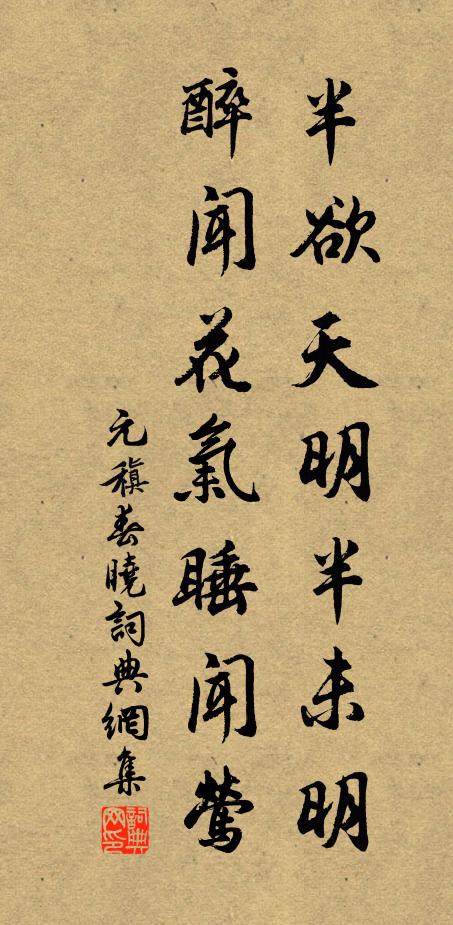 半欲天明半未明
醉聞花氣睡聞鶯
元稹春曉詞典網集
詞典網印